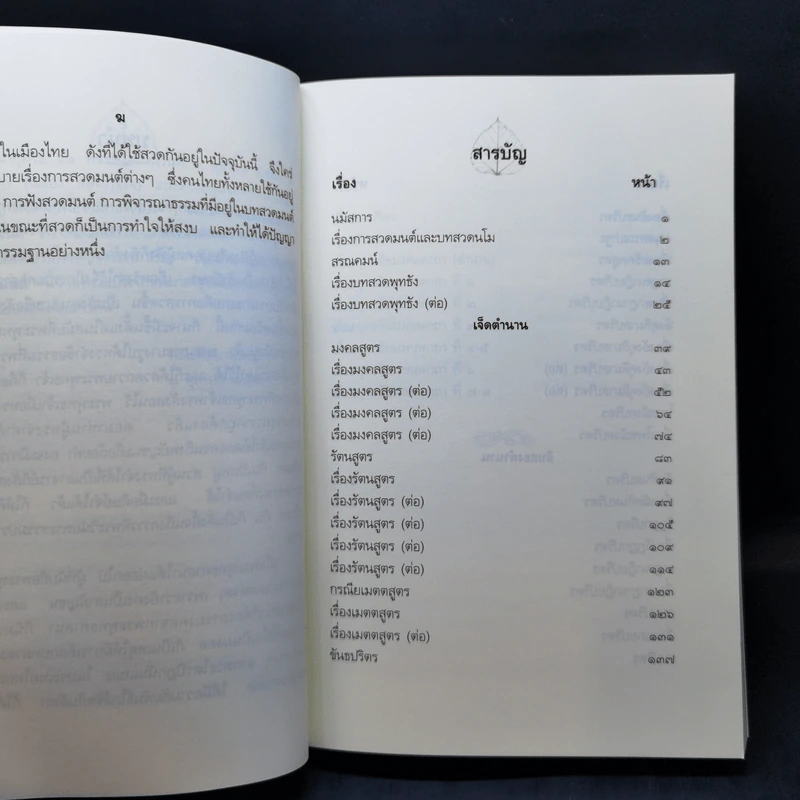 ฆ
ในเมืองไทย ดังที่ได้ใช้สวดกันอยู่ในปัจจุบันนี้ จึงใคร่
บายเรื่องการสวดมนต์ต่างๆ ซึ่งคนไทยทั้งหลายใช้กันอยู่
การฟังสวดมนต์ การพิจารณาธรรมที่มีอยู่ในบทสวดมนต์
นขณะที่สวดก็เป็นการทำใจให้สงบ และทำให้ได้ปัญญา
กรรมฐานอย่างหนึ่ง
สารบัญ
เรื่อง หน้า
นมัสการ ๑
เรื่องการสวดมนต์และบทสวดนโม ๒
สรณคมน์ ๑๓
เรื่องบทสวดพุทธัง ๑๔
เรื่องบทสวดพุทธัง (ต่อ) ๒๕
เจ็ดตำนาน
มงคลสูตร ๓๙
เรื่องมงคลสูตร ๔๓
เรื่องมงคลสูตร (ต่อ) ๕๒
เรื่องมงคลสูตร (ต่อ) ๖๔
เรื่องมงคลสูตร (ต่อ) ๗๔
รัตนสูตร ๘๓
เรื่องรัตนสูตร ๙๑
เรื่องรัตนสูตร (ต่อ) ๙๗
เรื่องรัตนสูตร (ต่อ) ๑๐๕
เรื่องรัตนสูตร (ต่อ) ๑๐๙
เรื่องรัตนสูตร (ต่อ) ๑๑๔
กรณียเมตตสูตร ๑๒๓
เรื่องเมตตสูตร ๑๒๖
เรื่องเมตตสูตร (ต่อ) ๑๓๑
ขันธปริตร ๑๓๗